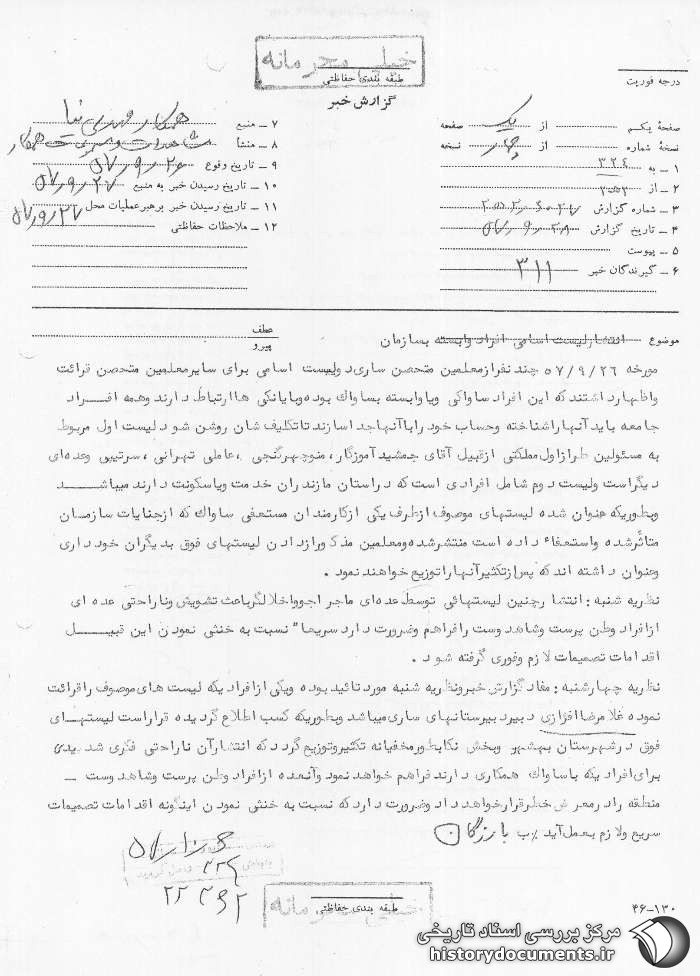 خیلی محرمانه
طبقه بندی حفاظتی
گزارش خبر
درجه فوریت
صفحهٔ یکم از یک صفحه
نسخهٔ شماره از چهار نسخه
۱ ـ به ۳۲٤
۲ ـ از
۳ ـ شماره گزارش
۴ ـ تاریخ گزارش ۲۸ر۹ر۵۷
۵ ـ پیوست
۶ ـ گیرندگان خبر ۳۱۱
۷ ـ منبع همکار
۸ ـ منشأ همکار
۹ ـ تاریخ وقوع ۲۶ر۹ر۵۷
۱۰ ـ تاریخ رسیدن خبر به منبع ۲۷ر۹ر۵۷
۱۱ ـ تاریخ رسیدن خبر برهبر عملیات محل ۲۷ر۹ر۵۷
۱۲ ـ ملاحظات حفاظتی
موضوع انتشار لیست اسامی افراد وابسته بسازمان
عطف
پیرو
مورخه ۵۷/۹/۲۶ چند نفر از معلمین متحصن ساری دو لیست اسامی برای سایر معلمین متحصن قرائت
و اظهار داشتند که این افراد ساواکی و یا وابسته بساواک بوده و یا بانکی ها ارتباط دارند و همه افراد
جامعه باید آنها را شناخته و حساب خود را با آنها جدا سازند تا تکلیف شان روشن شود لیست اول مربوط
به مسئولین طراز اول مملکتی از قبیل آقای جمشید آموزگار، منوچهر گنجی ، عاملی تهرانی ، سرتیبی وعده ای
دیگر است و لیست دوم شامل افرادی است که در استان مازندران خدمت و یا سکونت دارند میباشد
و بطوریکه عنوان شده لیستهای موصوف از طرف یکی از کارمندان مستعفی ساواک که از جنایات سازمان
متأثر شده و استعفاء داده است منتشر شده و معلمین مذکور از دادن لیستهای فوق بدیگران خود داری
و عنوان داشته اند که پس از تکثیر آنها را توزیع خواهند نمود .
نظریه شنبه : انتشار چنین لیستهائی توسط عده ای ماجر اجو و اخلالگر باعث تشویش و ناراحتی عده ای
از افراد وطن پرست و شاهدوست را فراهم و ضرورت دارد سریعا" نسبت به خنثی نمودن این قبیل
اقدامات تصمیمات لازم و فوری گرفته شود .
نظریه چهارشنبه : مفاد گزارش خبر و نظریه شنبه مورد تائید بوده و یکی از افرادیکه لیست های موصوف را قرائت
نموده غلامرضا افرازی دبیر دبیرستانهای ساری میباشد و بطوریکه کسب اطلاع گردیده قرار است لیستهای
فوق در شهرستان بهشهر و بخش نکا بطور مخفیانه تکثیر و توزیع گردد که انتشار آن ناراحتی فکری شدیدی
برای افرادیکه با ساواک همکاری دارند فراهم خواهد نمود و آنعده از افراد وطن پرست و شاهدوست ـ
منطقه را در معرض خطر قرار خواهد داد و ضرورت دارد که نسبت به خنثی نمودن اینگونه اقدامات تصمیمات
سریع و لازم بعمل آید بازرگان
طبقه بندی حفاظتی
خیلی محرمانه
۴۶-۱۳۰
مرکز بررسی اسناد تاریخی
historydocuments.ir